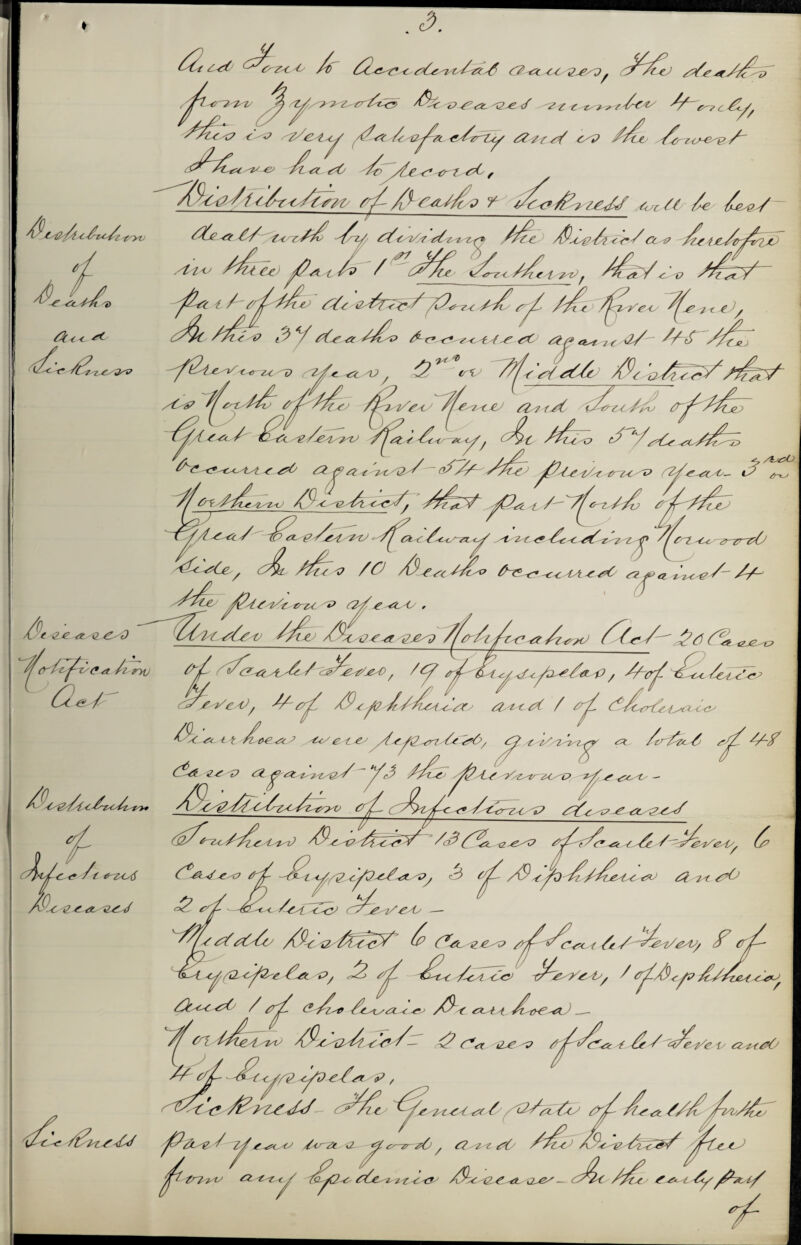 .3.
And Four to Accidental causes, The deaths
from Zymotic Diseases number 4 only,
this is very Satisfactory and is the lowest
I have had to record.
Distribution of Deaths & Sickness will be best
Distribution
of
Deaths
and
Sickness
dealt with by dividing the District as heretofore
in three parts 1st The Southern, that is that
part of the district South of the River Nene,
In this 37 deaths occurred against 45 the
previous year, 2nd or Middle District that
is North of the River Nene and South of the
Great Eastern Railway, In this 57 deaths
occurred against 54 the previous year - 3rd or
Northern District, that part North of the
Great Eastern Railway including Norwood
Side, In this 10 Deaths occurred against 4
the previous year.
Diseases
Notification
Act
Under the Diseases Notification Act 20 Cases
of Scarlet Fever, 19 of Erysipelas, 4 of Enteric
Fever, 4 of Diphtheria and 1 of Choleraic
Diarrhoea were reported, giving a total of 48
Cases against 73 the previous year -
Distribution
of
Infectious
Diseases
Distribution of Infectious diseases
Southern District 13 Cases of Scarlet Fever, 6
Cases of Erysipelas, 3 of Diphtheria and
2 of Enteric Fever -
Middle District 6 Cases of Scarlet Fever, 8 of
Erysipelas, 2 of Enteric Fever, 1 of Diphtheria,
and 1 of choleraic Diarrhoea -
Northern District - 2 cases of Scarlet Fever and
4 of Erysipelas,
Sickness
Sickness - The General state of health for the
past year was good, and the District free
from any Epidemic Disease - In the early part
of